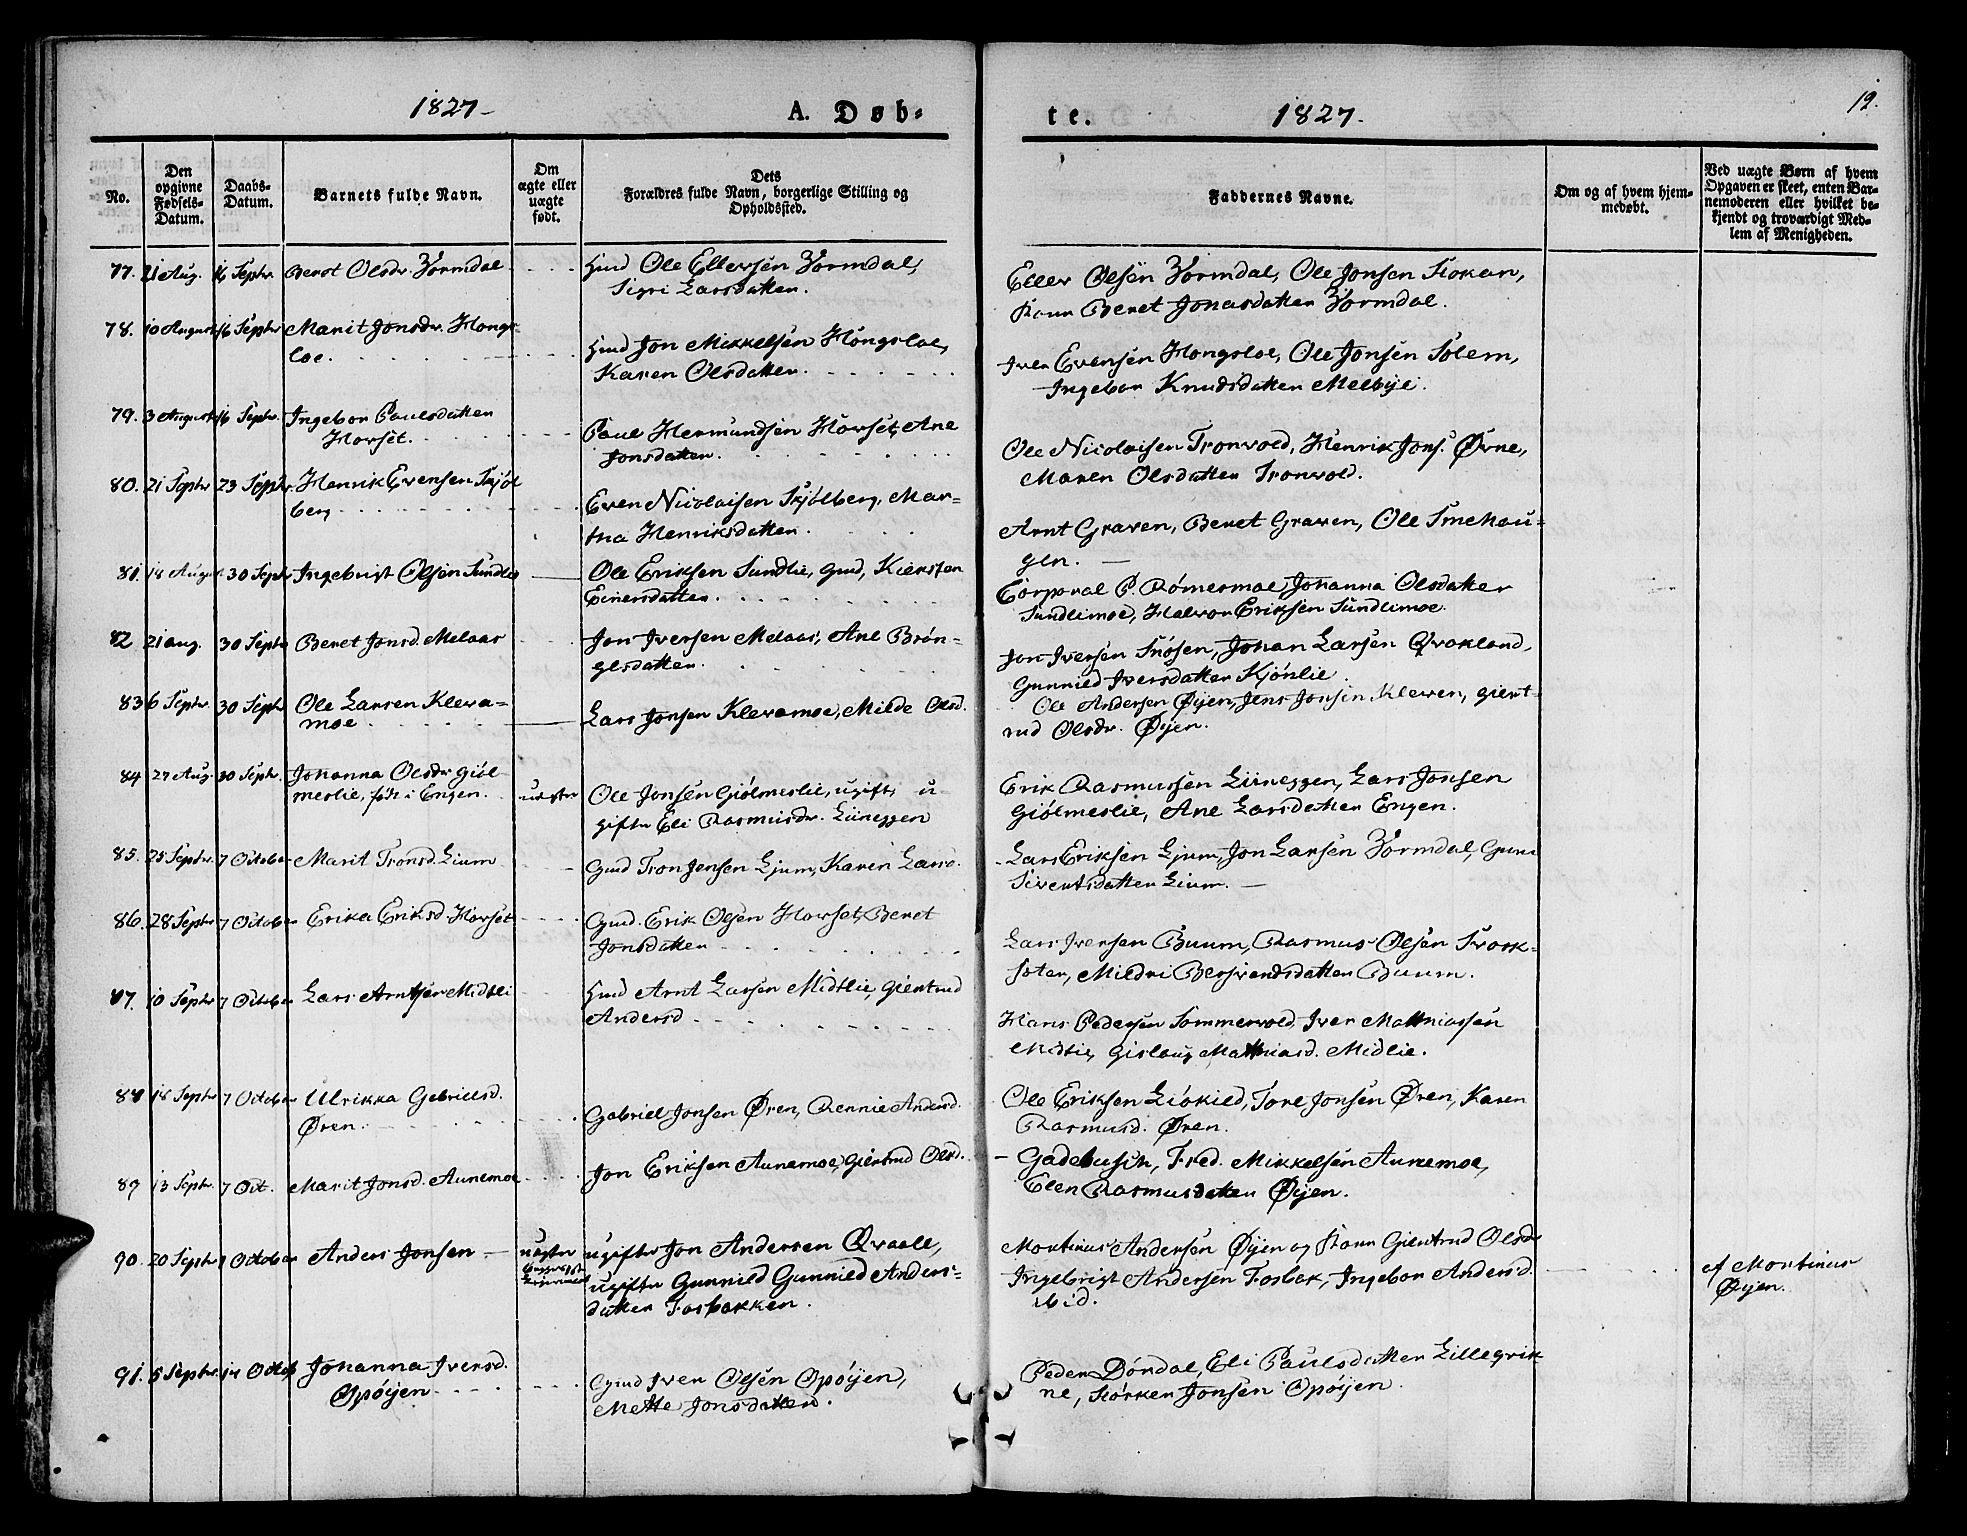 1827-
A. Døb-
te.
1827.
12.
No.
Den
opgivne
Fødsels-
Datum.
Daabs-
Datum.
Barnets fulde Navn.
Om
ægte eller
uægte
født.
Dets
Forældres fulde Navn, borgerlige Stilling og
Opholdssted.
Faddernes Navne.
Om og af hvem hjem-
medøbt.
Ved uægte Børn af hvem
Opgaven er skeet, enten Bar-
nemoderen eller hvilket be-
kjendt og troværdigt Med-
lem af Menigheden.
77. 21 Aug. 16 Septr. Beret Olsdr. Vormdal
Gmd Ole Ellevsen Vormdal,
Sigri Larsdatten.
Ellev Olsen Vormdal, Ole Jonsen Stokan,
Kone Beret Jonasdatten Vormdal.
78. 10 August 16 Septr Marit Jonsdr. Hongs-
loe.
Gmd Jon Mikkelsen Hongsloe,
Karen Olsdatten.
Iver Evensen Hongsloe, Ole Jonsen Solem,
Ingebor Knudsdatten Melbye.
79. 3 August 16 Septr. Ingebor Paulsdatten
Horset.
Paul Hermundsen Horset, Ane
Jonsdatten.
Ole Nicolaisen Tronvold, Henrik Jons. Ørne,
Maren Olsdatten Tronvold.
80. 21 Septr 23 Septr. Henrik Evensen Skjøl
berg
Even Nicolaisen Skjølberg, Mar-
tha Henriksdatten.
Arnt Graven, Beret Graven, Ole Smehau-
gen.
81. 18 August 30 Septr Ingebrigt Olsen Sundlie
Ole Eriksen Sundlie, Gmd, Kiersten
Einersdatten.
Corporal P. Rømesmoe, Johanna Olsdatter
Sundlimoe, Halvor Eriksen Sundlimoe.
82 21 aug. 30 Septr Beret Jonsd. Melaas
Jon Iversen Melaas, Ane Brøn-
gelsdatten.
Jon Iversen Snøsen, Johan Larsen Qvakland,
Gunnild Iversdatten Kjønlie.
83 6 Septr. 30 Septr Ole Larsen Kleva-
moe
Lars Jonsen Klevamoe, Milde Olsd.
Ole Andersen Øyen, Jens Jonsen Kleven, Giert-
rud Olsdr. Øyen.
84 27 Aug. 30 Septr. Johanna Olsdr Giøl
meslie, født i Engen. uægte
Ole Jonsen Giølmeslie, ugift, u-
gifte Eli Rasmusdr. Liineggen
Erik Rasmussen Liineggen, Lars Jonsen
Giølmeslie, Ane Larsdatten Engen.
85. 25 Septr. 7 October Marit Tronsd. Lium
Gmd Tron Jensen Ljum, Karen Larsd.
Lars Eriksen Ljum, Jon Larsen Vormdal, Guru
Siventsdatten Lium.
86. 28 Septr 7 October Erika Eriksd. Horset
Gmd. Erik Olsen Horset, Beret
Jonsdatten
Lars Iversen Buum, Rasmus Olsen Svork-
soter, Mildri Bersvendsdatten Buum.
87. 10 Septr 7 October Lars Arntsen Midtli
Gmd Arnt Larsen Midtlie, Giertrud
Andersd
Hans Pedersen Sommervold, Iver Matthiassen
Midtlie, Gislaug Mathiasd. Midlie.
88 18 Septr 7 October Ulrikka Gabrielsd.
Øren.
Gabriel Jonsen Øren, Rennie Andersd.
Ole Eriksen Liøkild, Tore Jonsen Øren, Karen
Rasmusd. Øren.
89 13 Septr. 7 Oct. Marit Jonsd. Aunemoe
Jon Eriksen Aunemoe, Giertrud Olsd.
Gadebusch, Fred. Mikkelsen Aunemoe,
Elen Rasmusdatten Øyen.
90. 20 Septr 7 October Anders Jonsen uægte
ugifte Jon Andersen Qvaale,
ugifte Gunnild Gunnild Anders-
datten Fosbakken.
Mortinus Andersen Øyen og Kone Giertrud Olsdr
Ingebrigt Andersen Fosbak, Ingebor Andersd.
ibid.
af Mortinus
Øyen.
91. 5 Septr. 14 Octob Johanna Iversd.
Opøyen
Gmd Iver Olsen Opøyen,
Mette Jonsdatten.
Peder Dørdal, Eli Paulsdatten Lillegrik
ne, Størker Jonsen Opøyen.